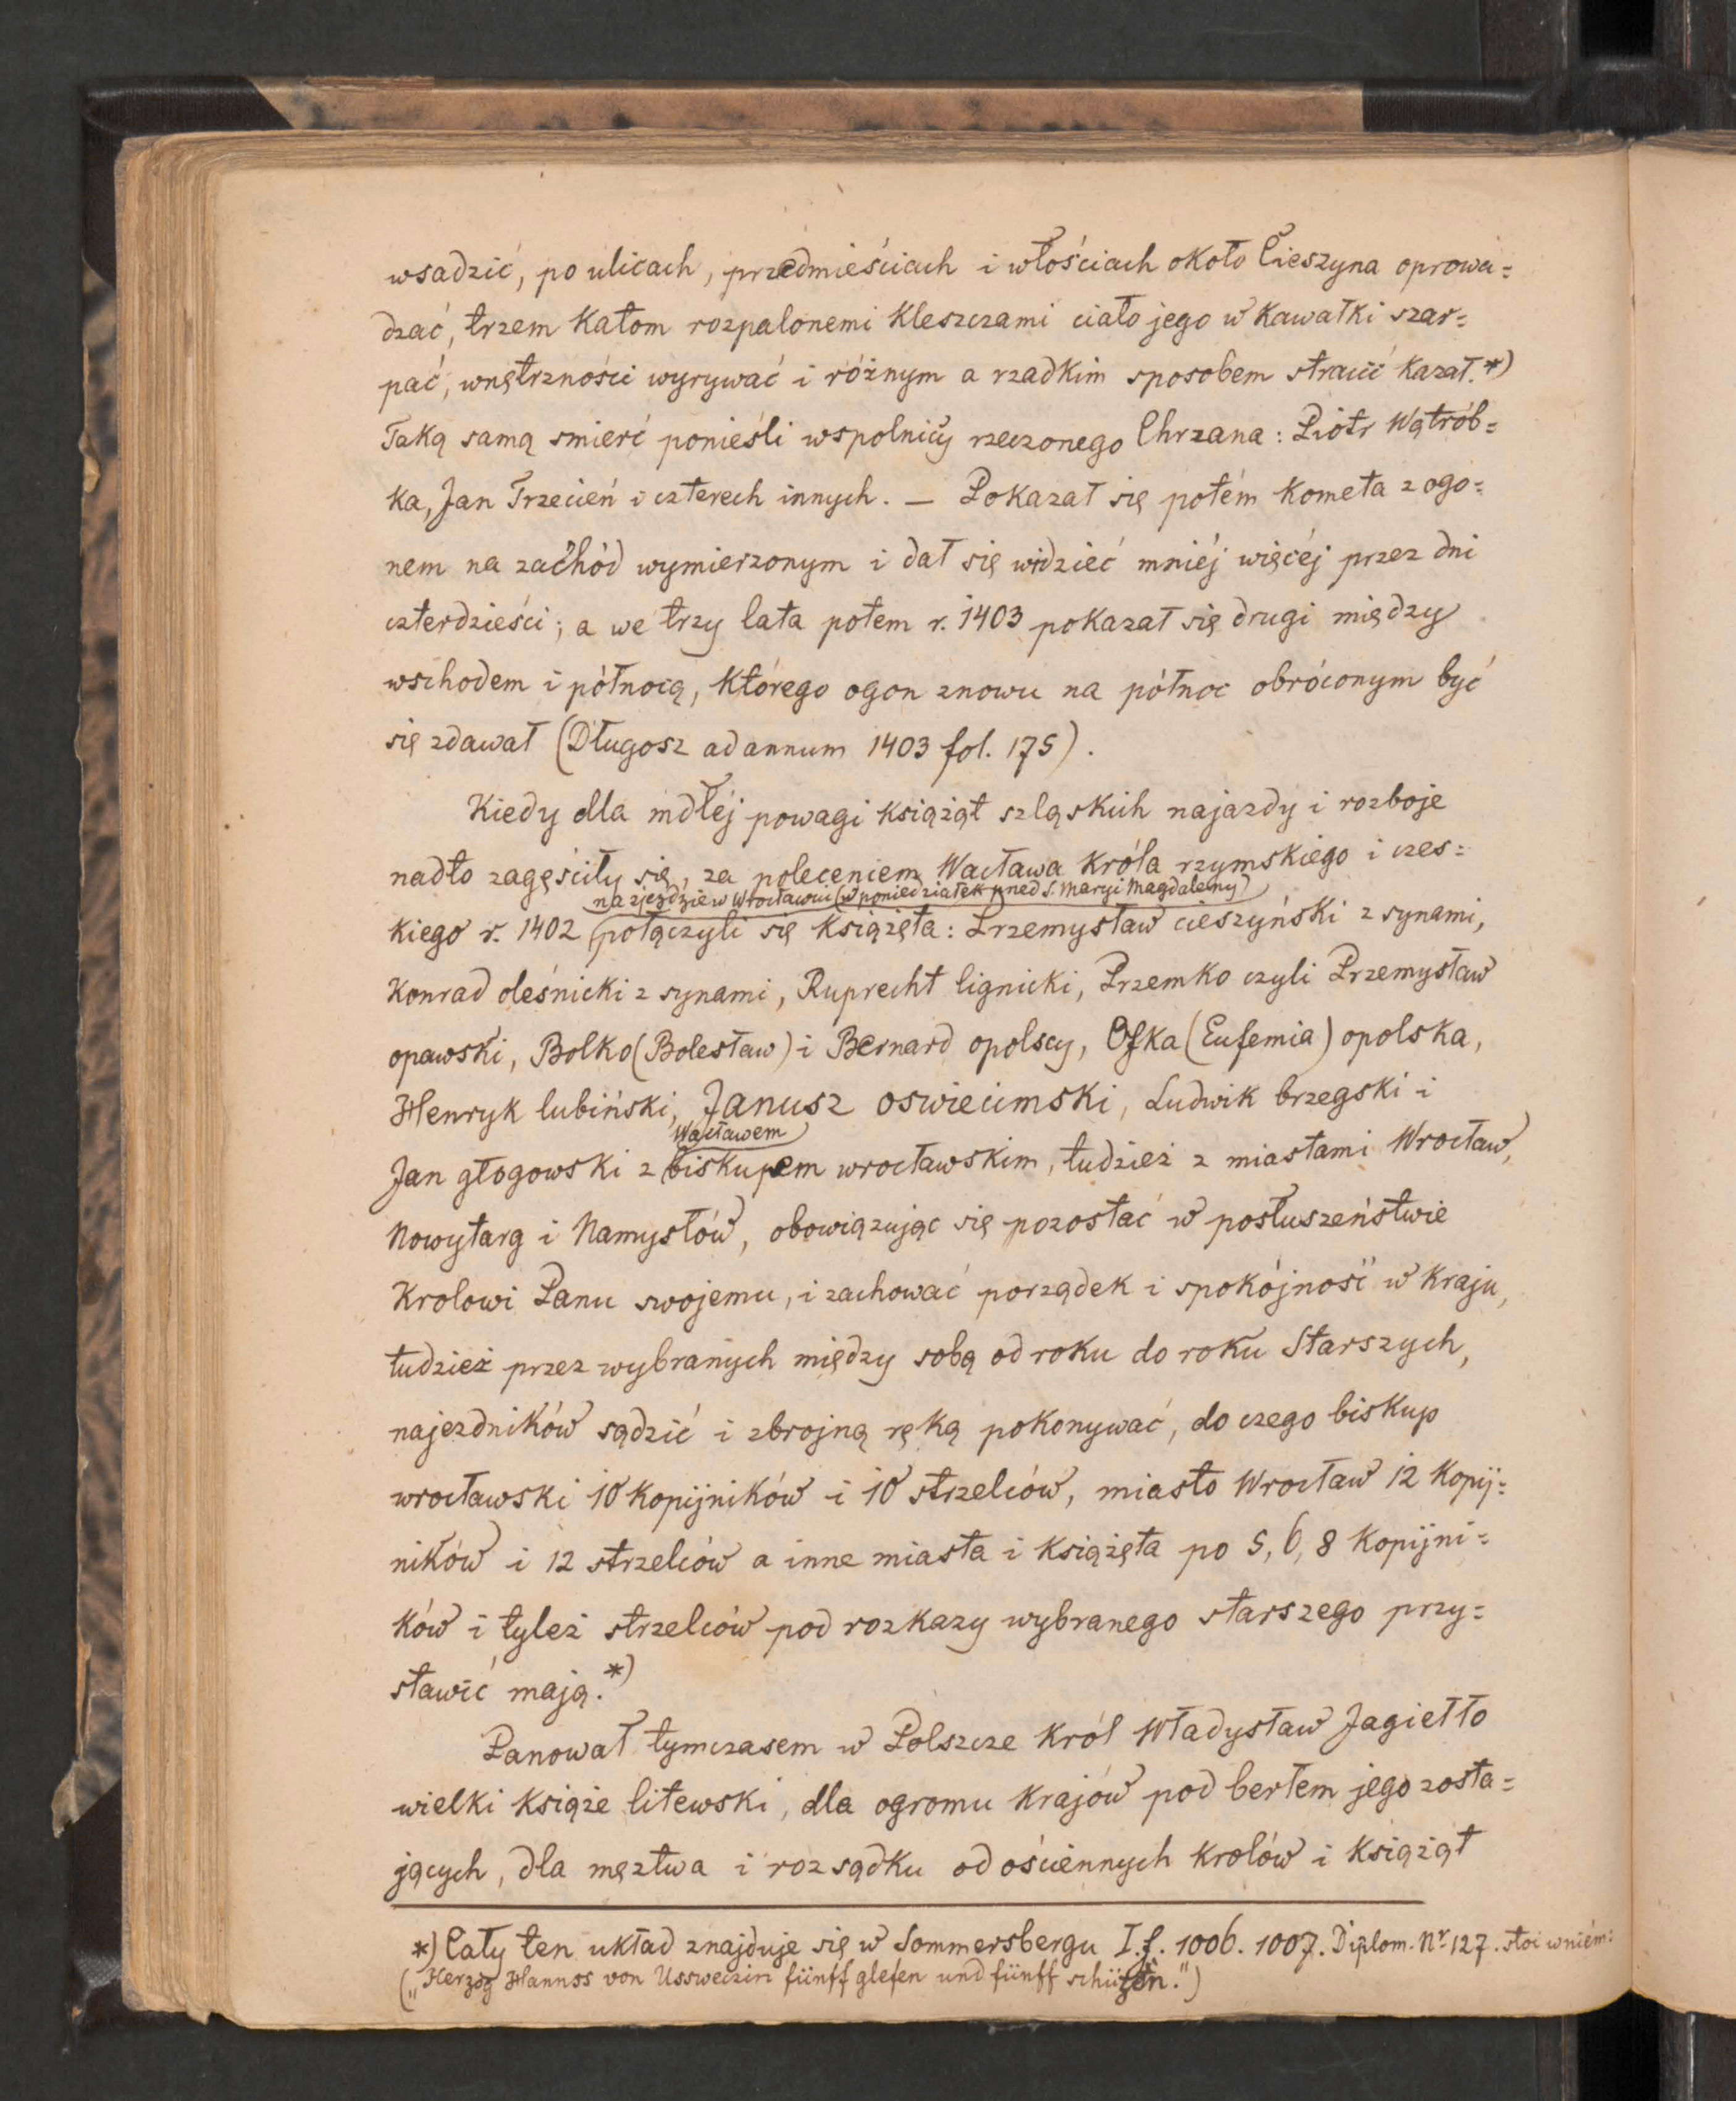 wsadzić, po ulicach, przedmieściach i włościach około Cieszyna oprowa=
dzać, trzem katom rozpalonemi kleszczami ciało jego w kawałki szar=
pać, wnętrzności wyrywać i różnym a rzadkim sposobem stracić kazał.*)
Taką samą smierć ponieśli wspolnicy rzeczonego Chrzana: Piotr Wątrób=
ka, Jan Trzecień i czterech innych. — Pokazał się potém kometa z ogo=
nem na zachód wymierzonym i dał się widzieć mniéj więcéj przez dni
czterdzieści; a we trzy lata potem r. 1403 pokazał się drugi między
wschodem i północą, którego ogon znowu na północ obróconym być
się zdawał (Długosz ad annum 1403 fol. 175).
Kiedy dla mdłéj powagi książąt szląskich najazdy i rozboje
nadto zagęściły się, za poleceniem Wacława króla rzymskiego i czes=
na zjeździe w Wrocławiu (w poniedziałek przed S. Maryi Magdaleny)
kiego r. 1402 połączyli się książęta: Przemysław cieszyński z synami,
Konrad oleśnicki z synami, Ruprecht lignicki, Przemko czyli Przemysław
opawski, Bolko (Bolesław) i Bernard opolscy, Ofka (Eufemia) opolska,
Henryk lubiński, Janusz oswiecimski, Ludwik brzegski i
Wacławem
Jan głogowski z biskupem wrocławskim, tudzież z miastami Wrocław,
Nowytarg i Namysłów, obowiązując się pozostać w posłuszeństwie
Krolowi Panu swojemu, i zachować porządek i spokójność w kraju,
tudzież przez wybranych między sobą od roku do roku Starszych,
najezdników sądzić i zbrojną ręką pokonywać, do czego biskup
wrocławski 10 kopijników i 10 strzelców, miasto Wrocław 12 kopij=
ników i 12 strzelców a inne miasta i książęta po 5, 6, 8 kopijni=
ków i tyleż strzelców pod rozkazy wybranego starszego przy=
stawić mają.*)
Panował tymczasem w Polszcze król Władysław Jagiełło
wielki książe litewski, dla ogromu krajów pod berłem jego zosta=
jących, dla męztwa i rozsądku od ościennych krolów i książąt
*) Cały ten układ znajduje się w Sommersbergu I. f. 1006. 1007. Diplom. Nr. 127. stoi w niém:
(„Herzog Hannos von Ussweczin fünff glefen und fünff schützen.")